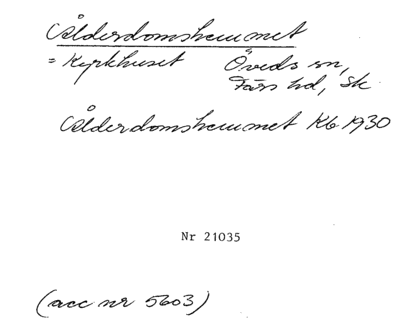 Ålderdomshemmet
= Kyrkhuset Öveds sn,
Färs hd, Sk.
Ålderdomshemmet Kb 1930
Nr 21035
(acc nr 5603)